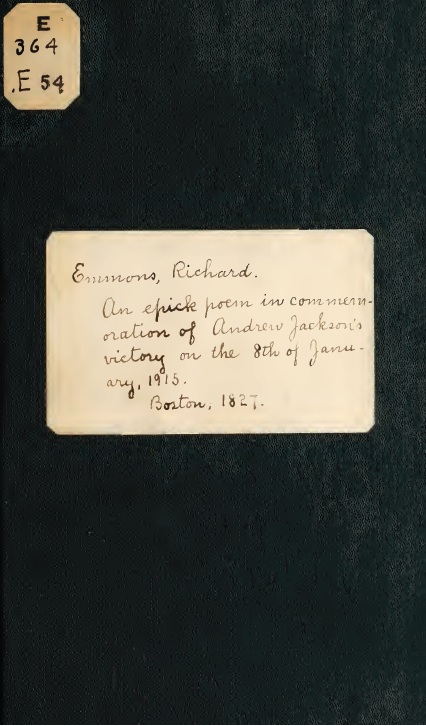 E
364
.E 54
Emmons, Richard.
An epick poem in commem-
oration of Andrew Jackson's
victory on the 8th of Janu-
ary, 1915.
Boston, 1827.